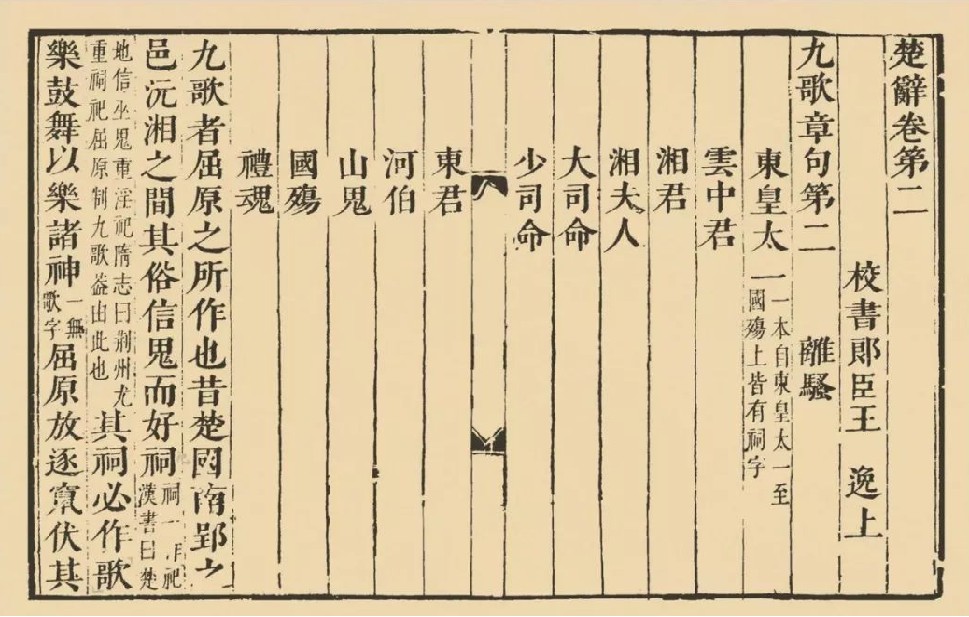 楚辭卷第二
校書郎臣王　逸上
九歌章句第二　離騷
東皇太一一本自東皇太一至國殤上皆有祠字
雲中君
湘君
湘夫人
大司命
少司命
東君
河伯
山鬼
國殤
禮魂
九歌者屈原之所作也昔楚國南郢之
邑沅湘之間其俗信鬼而好祠祠一作祀漢書曰楚
地信巫鬼重淫祀隋志曰荆州尤重祠祀屈原制九歌蓋由此也其祠必作歌
樂鼓舞以樂諸神一無歌字屈原放逐竄伏其